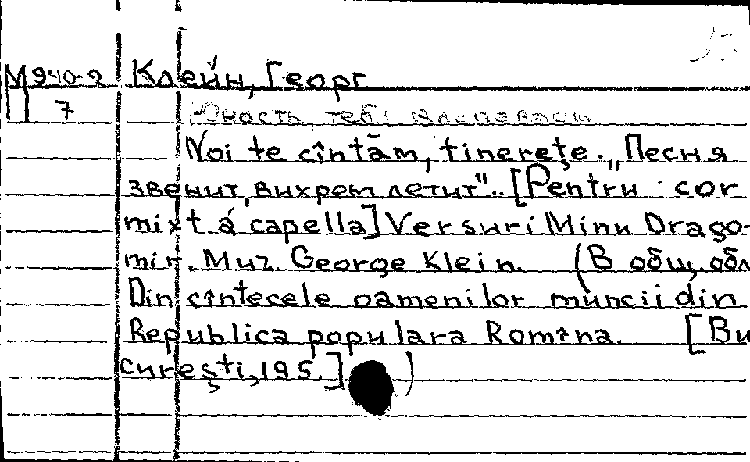 М940-2 Клейн, Георг
П 7 Юность, тебя
Noi te cîntăm, tinereţe. „Песня
звенит, вихрем летит". [Pentru cor
mixt á capella] Versuri Minu Drago-
mir. Muz. George Klein. (В общ. обл
Din cîntecele oamenilor muncii din
Republica populara Romîna. [Bu
cureşti, 195.] )